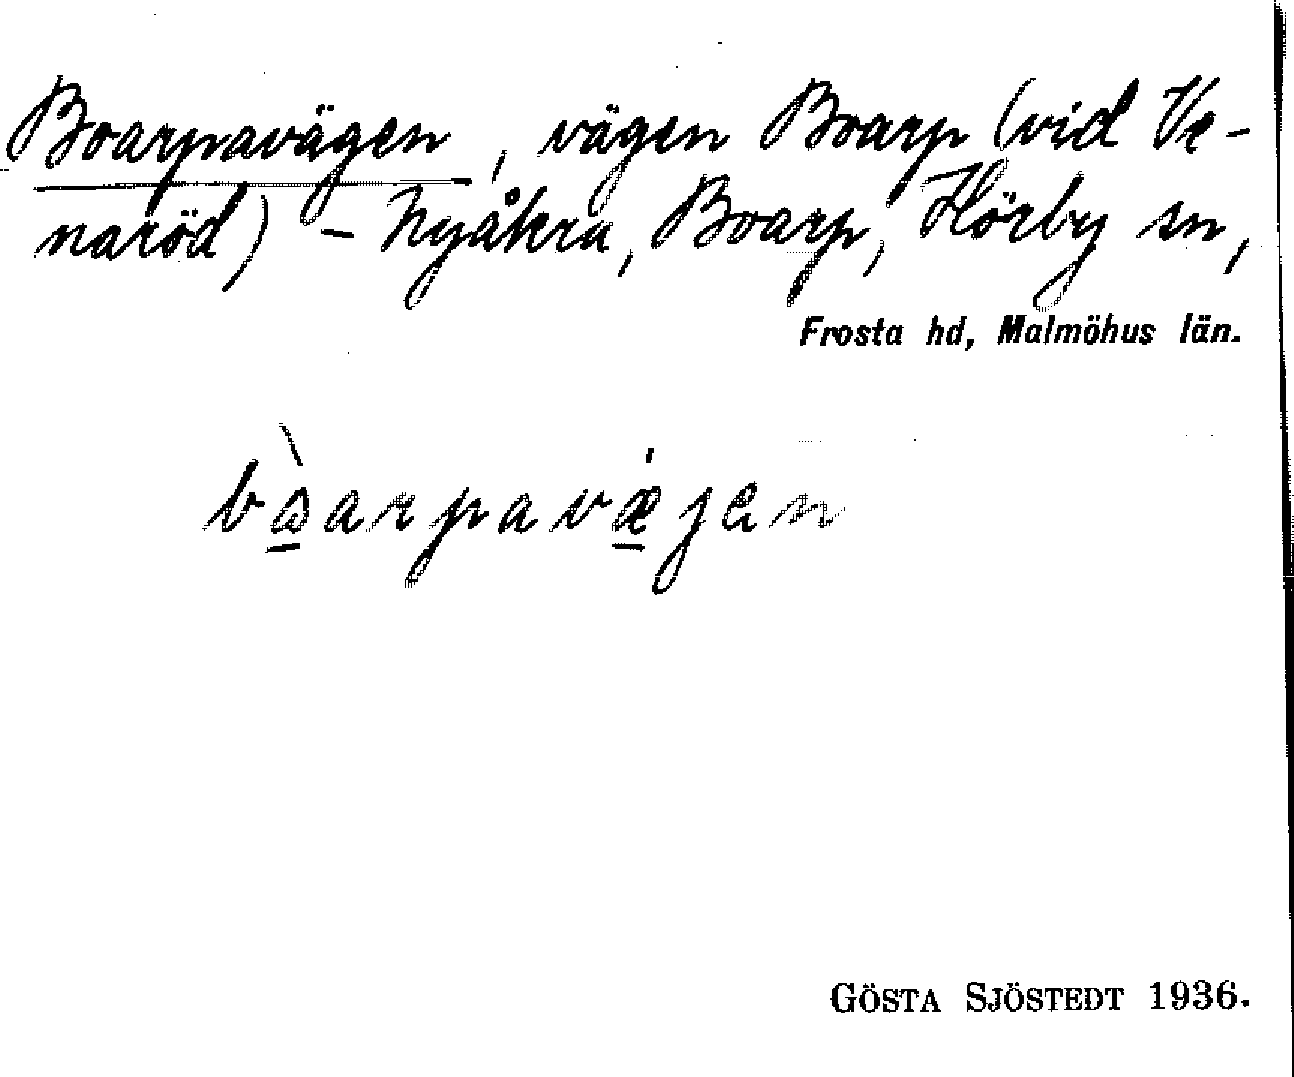 Boarpavägen, vägen Boarp (vid Ve-
naröd) - Nyåkra, Boarp, Hörby sn,
Frosta hd, Malmöhus län.
bòarpavæ̍jen
GÖSTA SJÖSTEDT 1936.